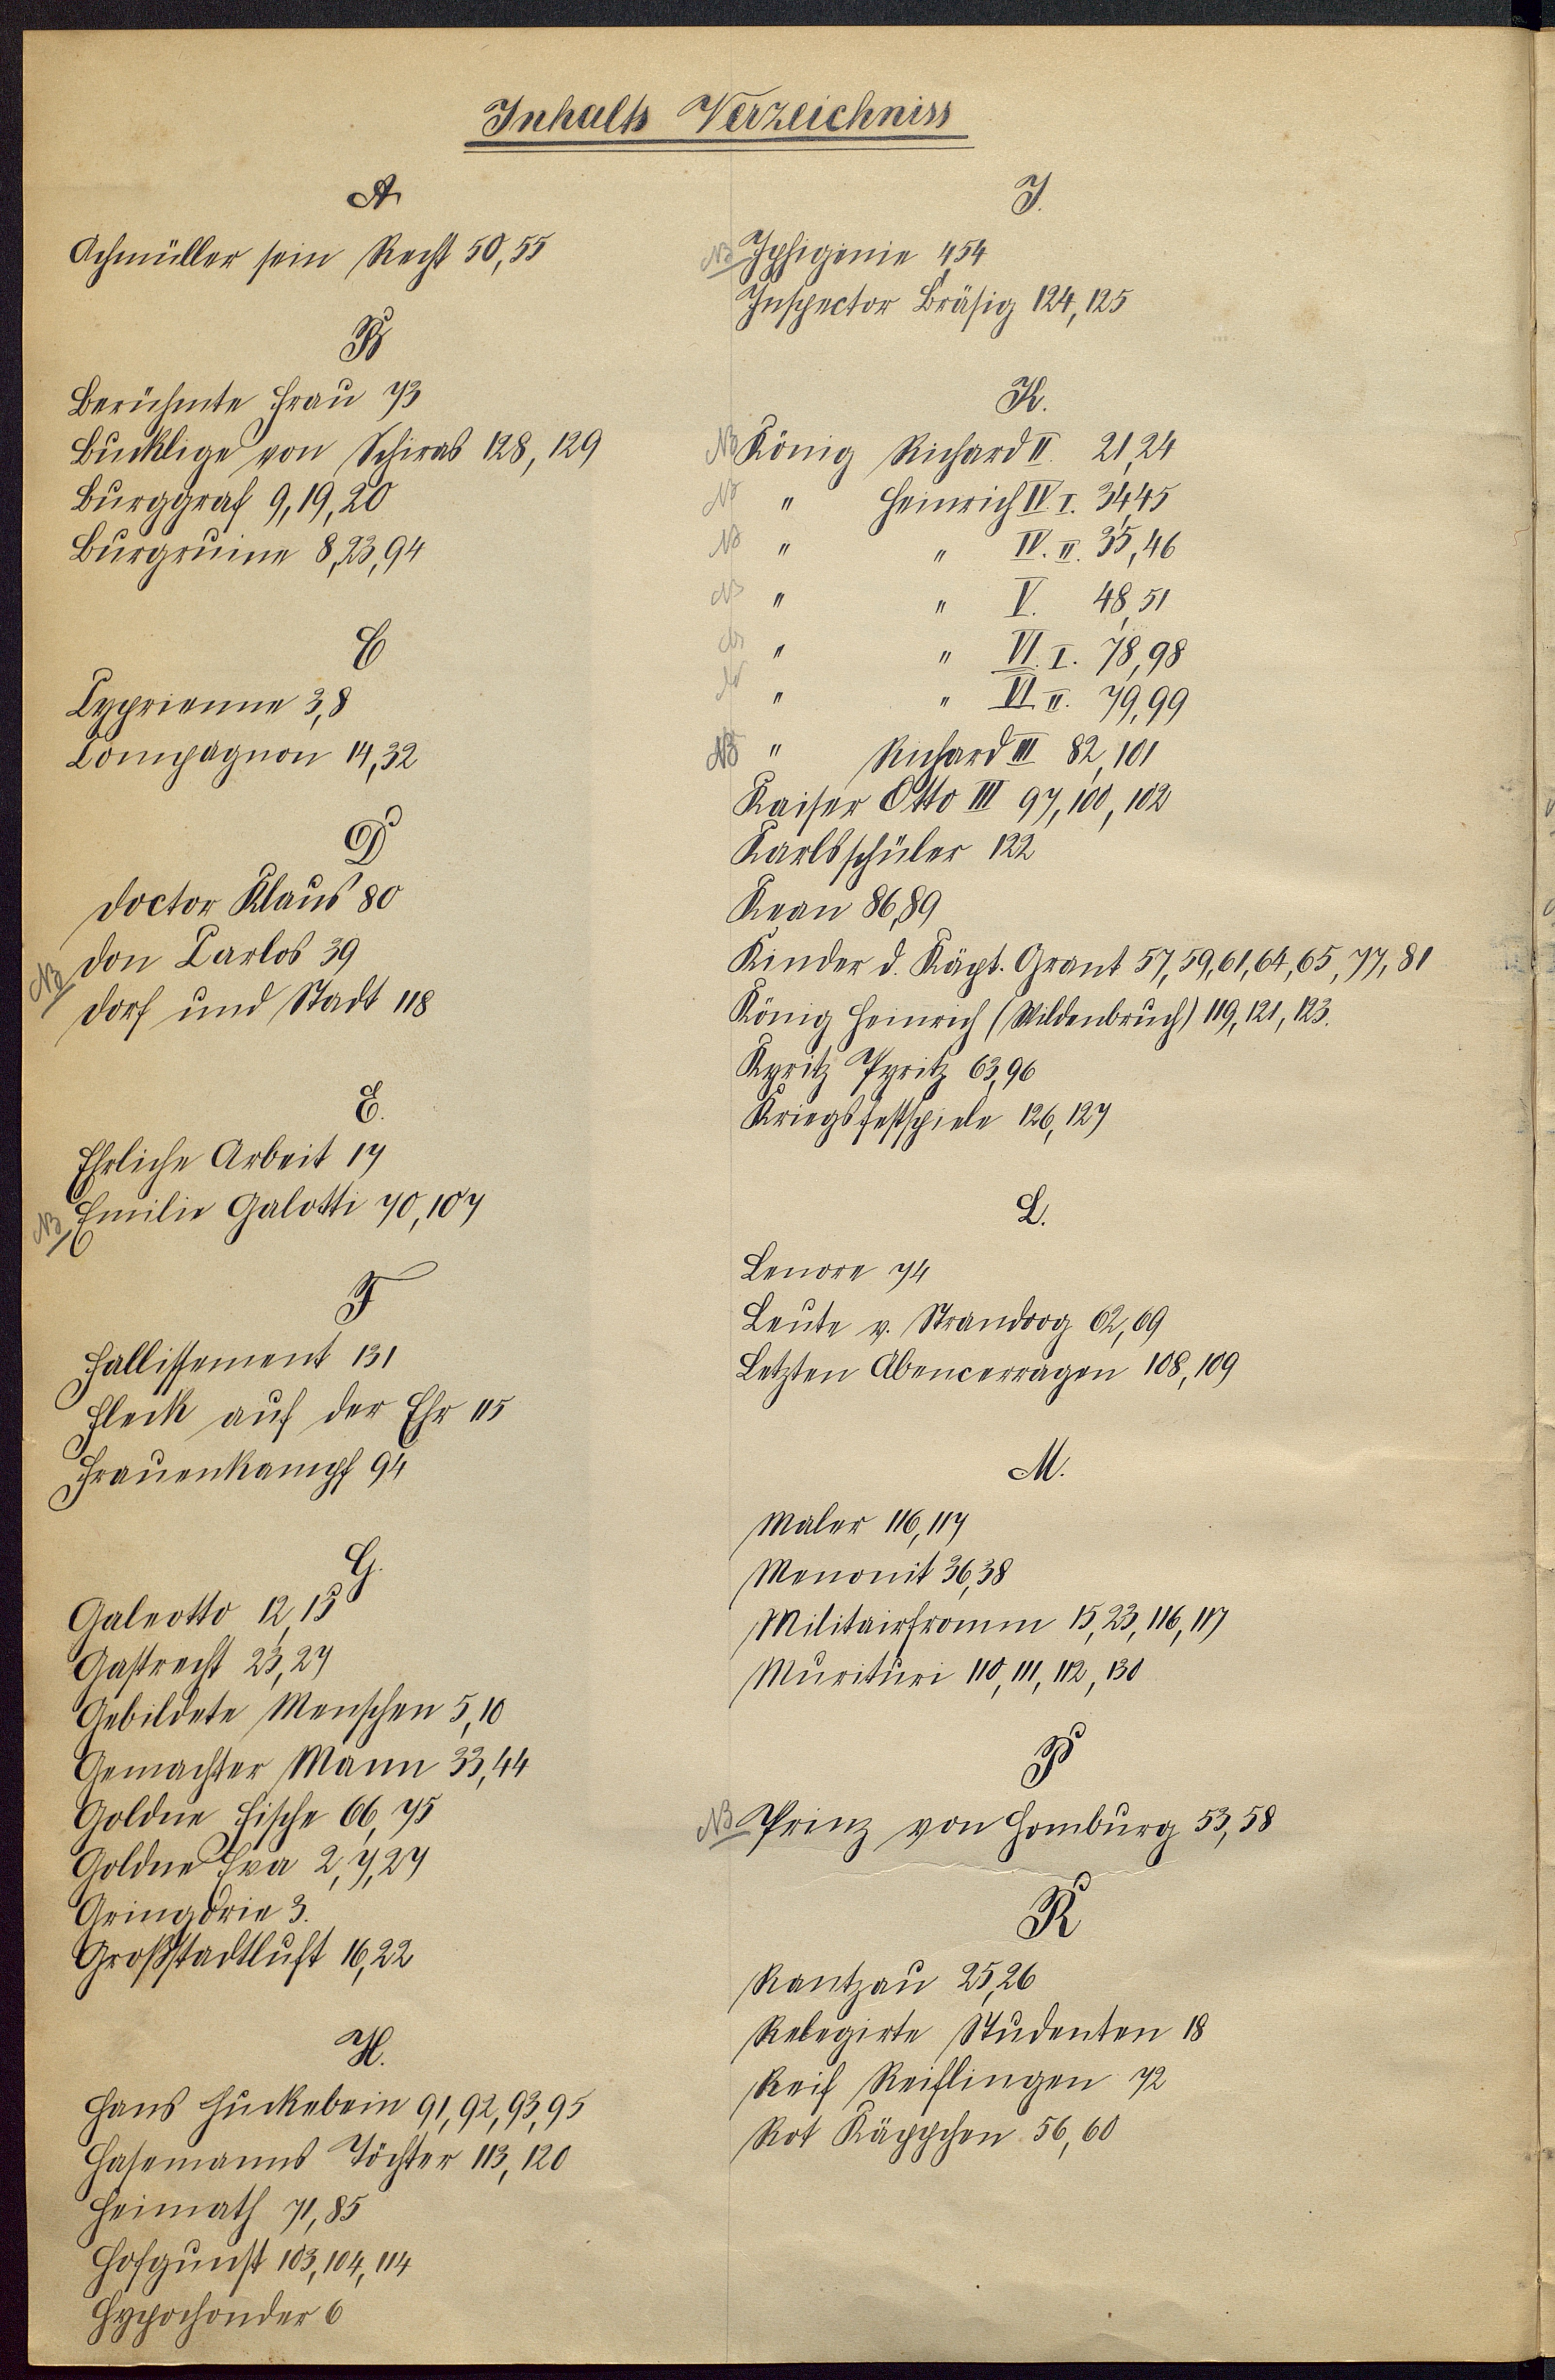 Inhalts Verzeichniss
A
Achmüller sein Recht 50, 55
B
Berühmte Frau 73
Bucklige von Schiras 128, 129
Burggraf 9, 19, 20
Burgruine 8, 23, 94
C
Cyprienne 3, 8
Compagnon 14, 32
D
Doctor Klaus 80
NB Don Carlos 39
Dorf und Stadt 118
E.
Ehrliche Arbeit 17
NB Emilie Galotti 70, 107
F
Fallissement 131
Fleck auf der Ehr 115
Frauenkampf 94
G.
Galeotto 12, 13
Gastrecht 23, 27
Gebildete Menschen 5, 10
Gemachter Mann 33, 44
Goldne Fische 66, 75
Goldne Eva 2, 7, 27
Gringoire 3.
Großstadtluft 16, 22
H.
Hans Huckebein 91, 92, 93, 95
Hasemanns Töchter 113, 120
Heimath 71, 85
Hofgunst 103, 104, 114
Hypochonder 6
J.
NB Iphigenie 4, 54
Inspector Bräsig 124, 125
K.
NB König Richard II 21, 24
NB " Heinrich IV. I. 34, 45
NB " " IV. II. 35, 46
NB " " V. 48, 51
NB " " VI. I. 78, 98
NB " " VI. II. 79, 99
NB " Richard III 82, 101
Kaiser Otto III 97, 100, 102
Karlsschüler 122
Kean 86, 89
Kinder d. Käpt. Grant 57, 59, 61, 64, 65, 77, 81
König Heinrich (Wildenbruch) 119, 121, 123.
Kyritz Pyritz 63, 96
Kriegsfestspiele 126, 127
L.
Lenore 74
Leute v. Strandoog 62, 69
Letzten Abencerragen 108, 109
M.
Maler 116, 117
Menonit 36, 38
Militairfromm 15, 23, 116, 117
Murituri 110, 111, 112, 130
P
NB Prinz von Homburg 53, 58
R
Rantzau 25, 26
Relegirte Studenten 18
Reif Reiflingen 72
Rot Käppchen 56, 60